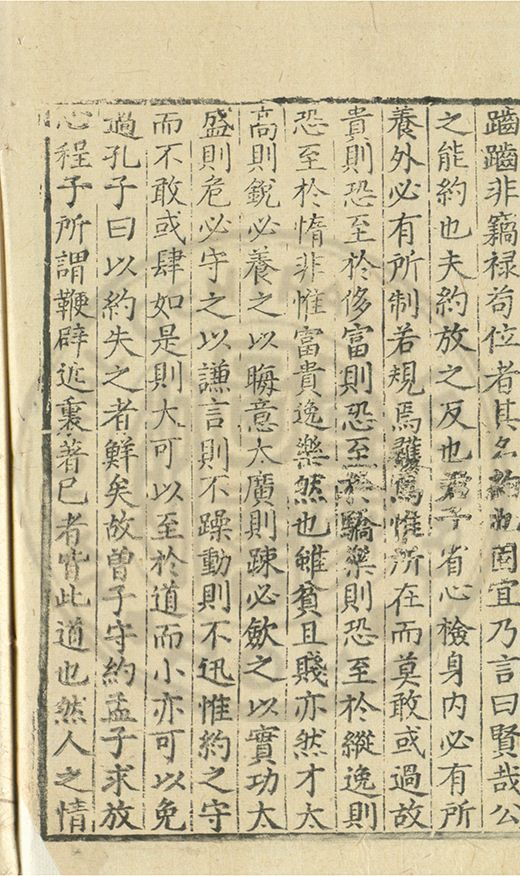 非竊禄苟位者其名約也固宜乃言曰賢哉公
之能約也夫約放之反也君子省心檢身内必有所
養外必有所制若規焉矱焉惟所在而莫敢或過故
貴則恐至於侈富則恐至於驕樂則恐至於縱逸則
恐至於惰非惟富貴逸樂然也雖貧且賤亦然才太
高則銳必養之以晦意太廣則踈必歛之以實功太
盛則危必守之以謙言則不躁動則不迅惟約之守
而不敢或肆如是則大可以至於道而小亦可以免
過孔子曰以約失之者鮮矣故曾子守約孟子求放
心程子所謂鞭辟近裏著己者皆此道也然人之情